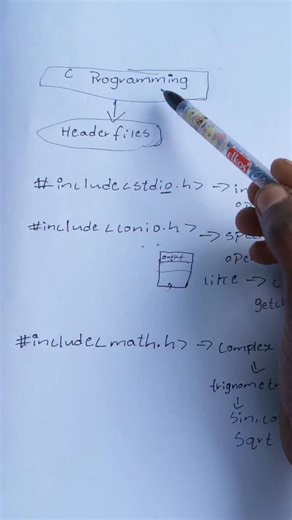 C Programming
Header files
#include<stdio.h> → in
#include<conio.h> →
output
ope
like →
getc
#include<math.h> → complex
trignometr
sin, co
Sqrt